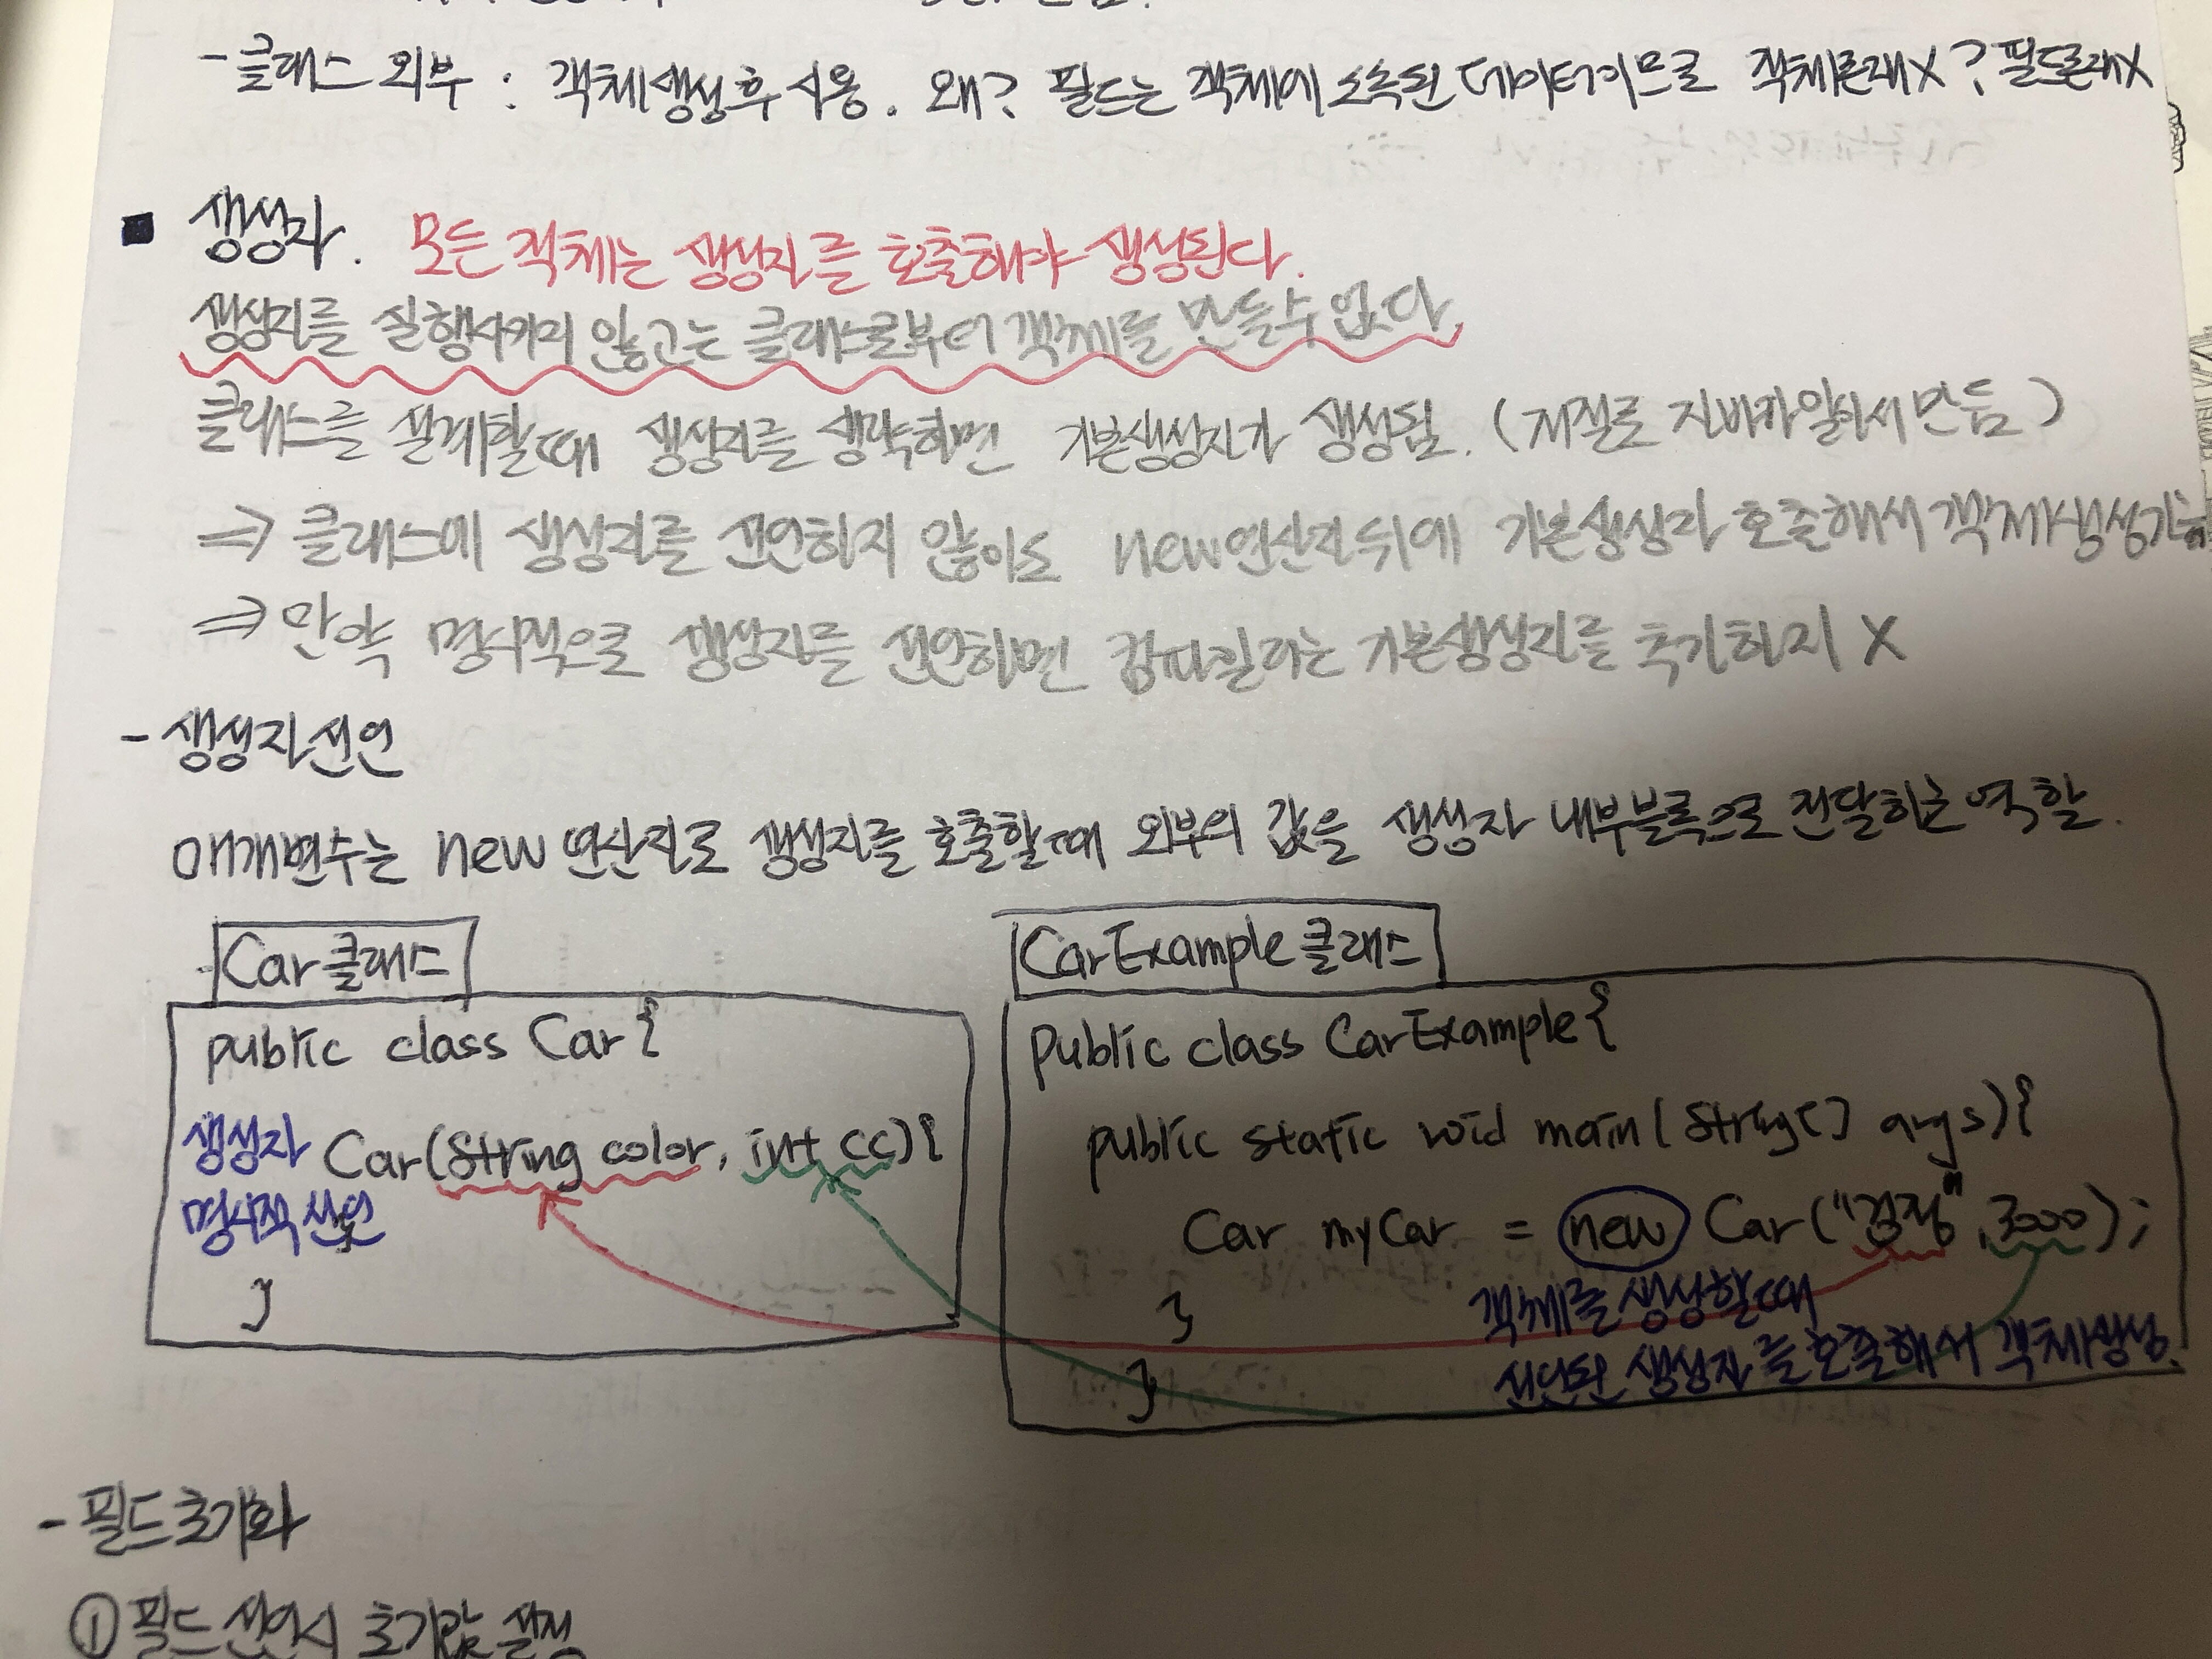 - 클래스 외부 : 객체생성후 사용. 왜? 필드는 객체에 소속된 데이터이므로 객체존재X? 필드존재X
■ 생성자. 모든 객체는 생성자를 호출해야 생성된다.
생성자를 실행시키지 않고는 클래스로부터 객체를 만들수 없다
클래스를 설계할때 생성자를 생략하면 기본생성자가 생성됨. (저절로 자바가알아서만듬)
⇒ 클래스에 생성자를 선언하지 않아도 new연산자뒤에 기본생성자 호출해서 객체생성가능
⇒ 만약 명시적으로 생성자를 선언하면 컴파일러는 기본생성자를 추가하지 X
- 생성자선언
매개변수는 new 연산자로 생성자를 호출할때 외부의 값을 생성자 내부블록으로 전달하는 역할.
Car클래스
public class Car {
생성자 Car(String color, int cc){
명시적 선언
}
CarExample 클래스
public class CarExample {
public static void main(String[] args){
Car myCar = new Car("검정", 3000);
} 객체를 생성할때
} 선언된 생성자를 호출해서 객체생성.
- 필드초기화
① 필드 선언시 초기값 설정